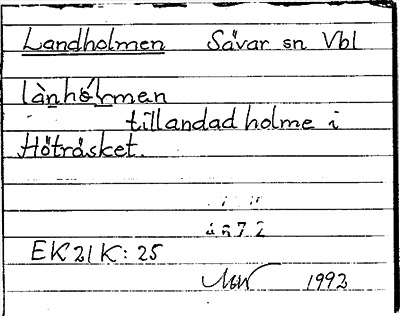 Landholmen Sävar sn Vbl
lànhólmen
tillandad holme i
Höträsket.
4672
EK21K:25
1992